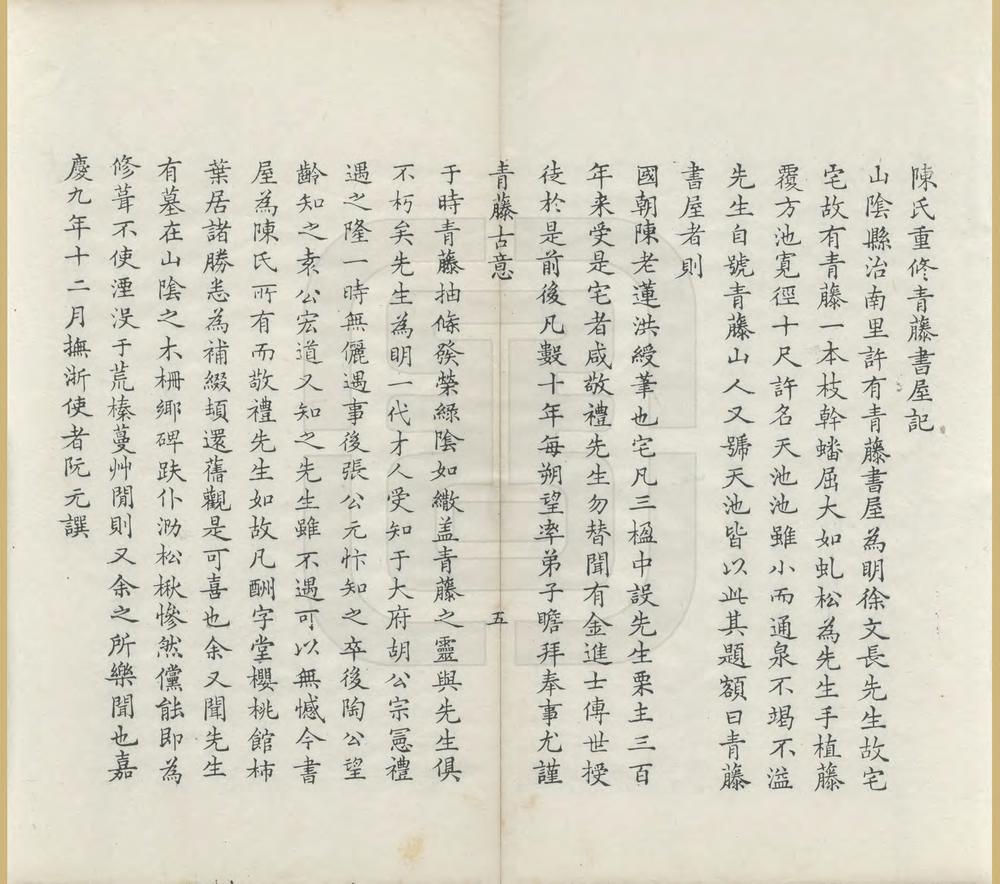 陳氏重修青藤書屋記
山陰縣治南里許有青藤書屋為明徐文長先生故宅
宅故有青藤一本枝幹蟠屈大如虬松為先生手植藤
覆方池寛徑十尺許名天池池雖小而通泉不竭不溢
先生自號青藤山人又號天池皆以此其題額曰青藤
書屋者則
國朝陳老蓮洪綬筆也宅凡三楹中設先生栗主三百
年来受是宅者咸敬禮先生勿替聞有金進士傳世授
徒於是前後凡數十年每朔望率弟子瞻拜奉事尤謹
青藤古意
五
于時青藤抽條發榮綠陰如繖盖青藤之靈與先生俱
不朽矣先生為明一代才人受知于大府胡公宗憲禮
遇之隆一時無儷遇事後張公元忭知之卒後陶公望
齡知之袁公宏道又知之先生雖不遇可以無憾今書
屋為陳氏所有而敬禮先生如故凡酬字堂櫻桃館柿
葉居諸勝悉為補綴頓還舊觀是可喜也余又聞先生
有墓在山陰之木柵鄉碑趺仆泐松楸慘然儻能即為
修葺不使湮沒于荒榛蔓艸閒則又余之所樂聞也嘉
慶九年十二月撫浙使者阮元譔